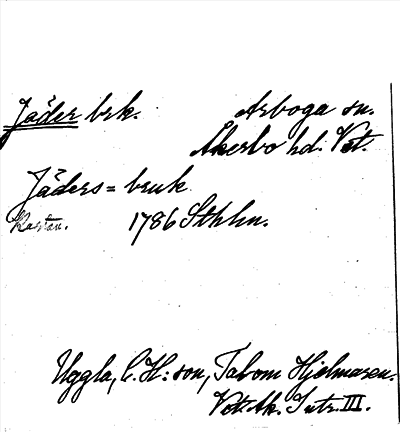 Jäder brk. Arboga sn.
Åkerbo hd. Vstm.
Jäders= bruk
Kartan. 1786 Sthlm.
Uggla, C. H:son, Tabom Hjelmaren.
Vet. Ak. Intr. III.